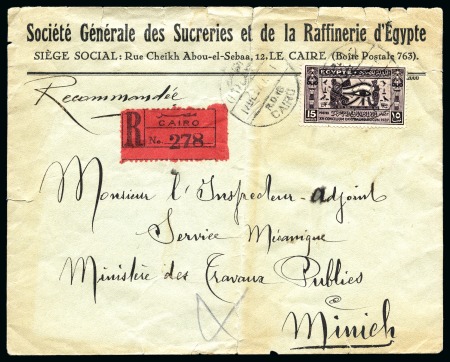 Société Générale des Sucreries et de la Raffinerie d'Égypte
SIÈGE SOCIAL: Rue Cheikh Abou-el-Sebaa, 12. LE CAIRE (Boîte Postale 763).
Recommandée
EGYPTE
15
١٥
CAIRO
R
CAIRO
No. 278
Monsieur l'Inspecteur-adjoint
Service Mécanique
Ministère des Travaux Publics
Minieh